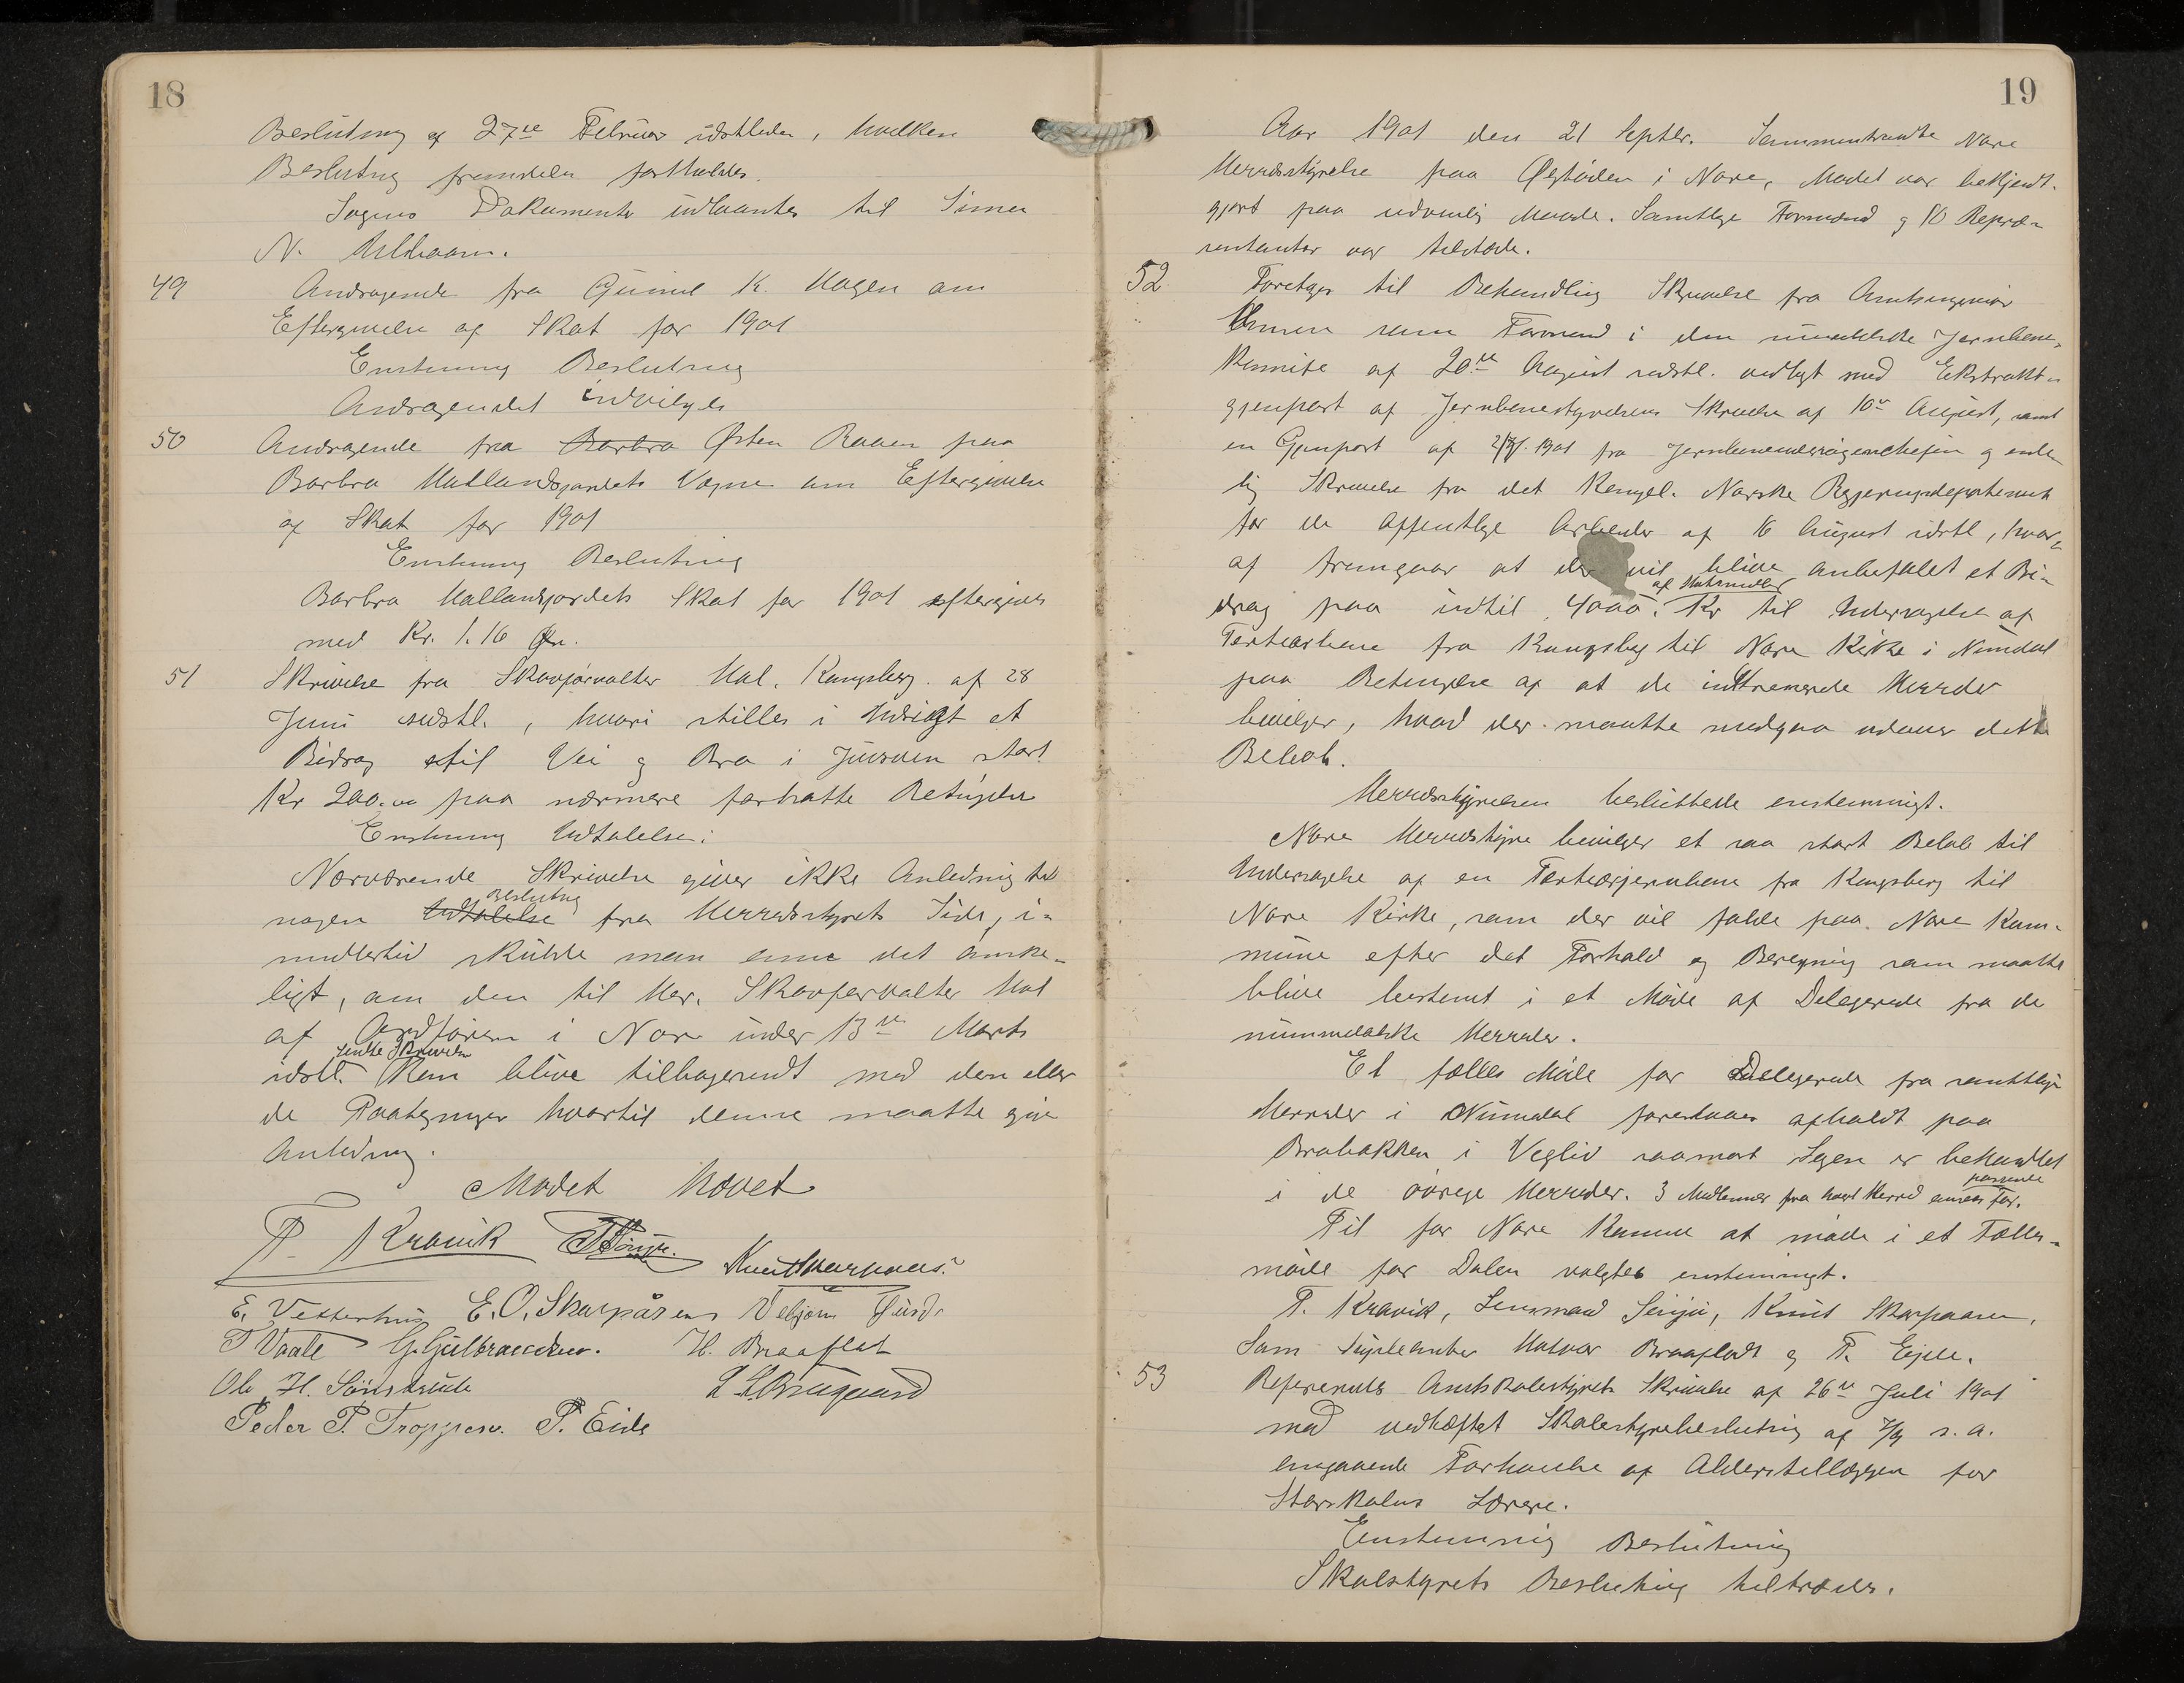 18
Beslutning af 27de Februar sidstleden, hvilken
Beslutning fremdeles fastholdes.
Sagens Dokumenter udlaantes til Simen
N.
49 Andragende fra Gunil K. Hagen om
Eftergivelse af Skat for 1901
Enstemmig Beslutning
Andragendet indvilges
50 Andragende fra Barbra Østen Raaen paa
Barbra Hallandsjordets Vegne om Eftergivelse
af Skat for 1901
Enstemmig Beslutning
Barbra Hallandsjordets Skat for 1901 eftergives
med Kr. 1.16 Øre.
51 Skrivelse fra Skovforvalter Hol. Kongsberg af 28
Juni sidstl., hvori stilles i Udsigt et
Bidrag til Vei og Bro i Juvsden stort
Kr 200.00 paa nærmere forhatte Betingelser
Enstemmig Udtalelse:
Nærværende Skrivelse giver ikke Anledning til
nogen Udtalelse Beslutning fra Herredsstyrets Side, i-
midlertid skulde man finde det ønske-
ligt, om den til Her. Skovforvalter Hol
af Ordføren i Nore under 13de Marts
sidstl. sendte Skrivelse kan blive tilbagesendt med den eller
de Paategninger hvortil denne maatte give
Anledning.
Mødet hævet
T. Kravik
Knut Skarpaas
E. Vesterhus E. O. Skarpåsen Vebjørn
T Vaale G. Gulbrandsen. H. Braaflat
Ole H. Sønsteslie
Peder P. Troppen. P. Eide
19
Aar 1901 den 21 Septbr. Sammentraadte Nore
Herredsstyrelse paa Øygarden i Nore, Mødet var bekjendt-
gjort paa sedvanlig Maade. Samtlige Formænd og 10 Repræ-
sentanter var tilstæde.
52 Foretages til Behandling Skrivelse fra Amtsingeniør
som Formand i den Jernbane-
komite af 20de August sidstl. vedlagt med Ekstrakt-
gjenpart af Jernbanestyrelsens Skrivelse af 10de August, samt
en Gjenpart af 1901 fra og ende-
lig Skrivelse fra det Kongel. Norske Regjeringsdepartement
for de offentlige Arbeider af 16 August sidstl, hvor-
af fremgaar at der vil blive anbefalet et Bi-
drag paa indtil 4000. Kr af Statsmidler til Undersøgelse af
Tertiærbane fra Kongsberg til Nore Kirke i Numdal
paa Betingelse af at de interesserede Herreder
bevilger, hvad der maatte medgaa udover dette
Beløb.
Herredsstyrelsen besluttede enstemmigt.
Nore Herredsstyre bevilger et saa stort Beløb til
Undersøgelse af en Tertiærjernbane fra Kongsberg til
Nore Kirke, som der vil falde paa Nore Kom-
mune efter det Forhold og Beregning som maatte
blive bestemt i et Møde af Delegerede fra de
nummedalske Herreder.
Et fælles Møde for Delegerede fra samtlige
Herreder i Numedal foreslaaes afholdt paa
Brobakken i Vegli saasnart Sagen er behandlet
i de øvrige Herreder. 3 Medlemmer fra hvert Herred ansees for passende.
Til for Nore Komune at møde i et Fælles-
møde for Dalen valgtes enstemmigt.
T. Kravik, Lensmand Sevju, Knut Skarpaasen,
Som Suppleanter Halvor Braafladt og T. Eide.
53 Refereredes Amtsskolestyrets Skrivelse af 26de Juli 1901
med vedhæftet Skolestyrebeslutning af 7/9 s. a.
angaaende Forhøielse af Alderstillæggen for
Storskolens Lærere.
Enstemmig Beslutning
Skolstyrets Beslutning tiltrædes.